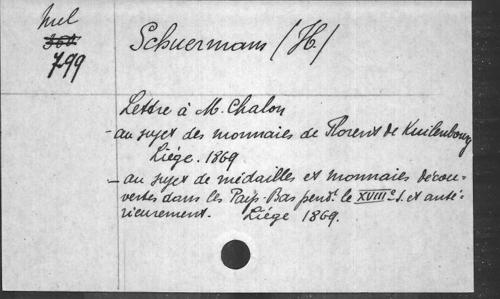 Mel
360
799
Schuermans (H.)
Lettre à M. Chalon
- au sujet des monnaies de Florent de Kuilenbourg
Liége. 1869
- au sujet de médailles et monnaies décou-
vertes dans les Pays-Bas pendt. le XVIIIe s. et anté-
rieurement. Liége 1869.